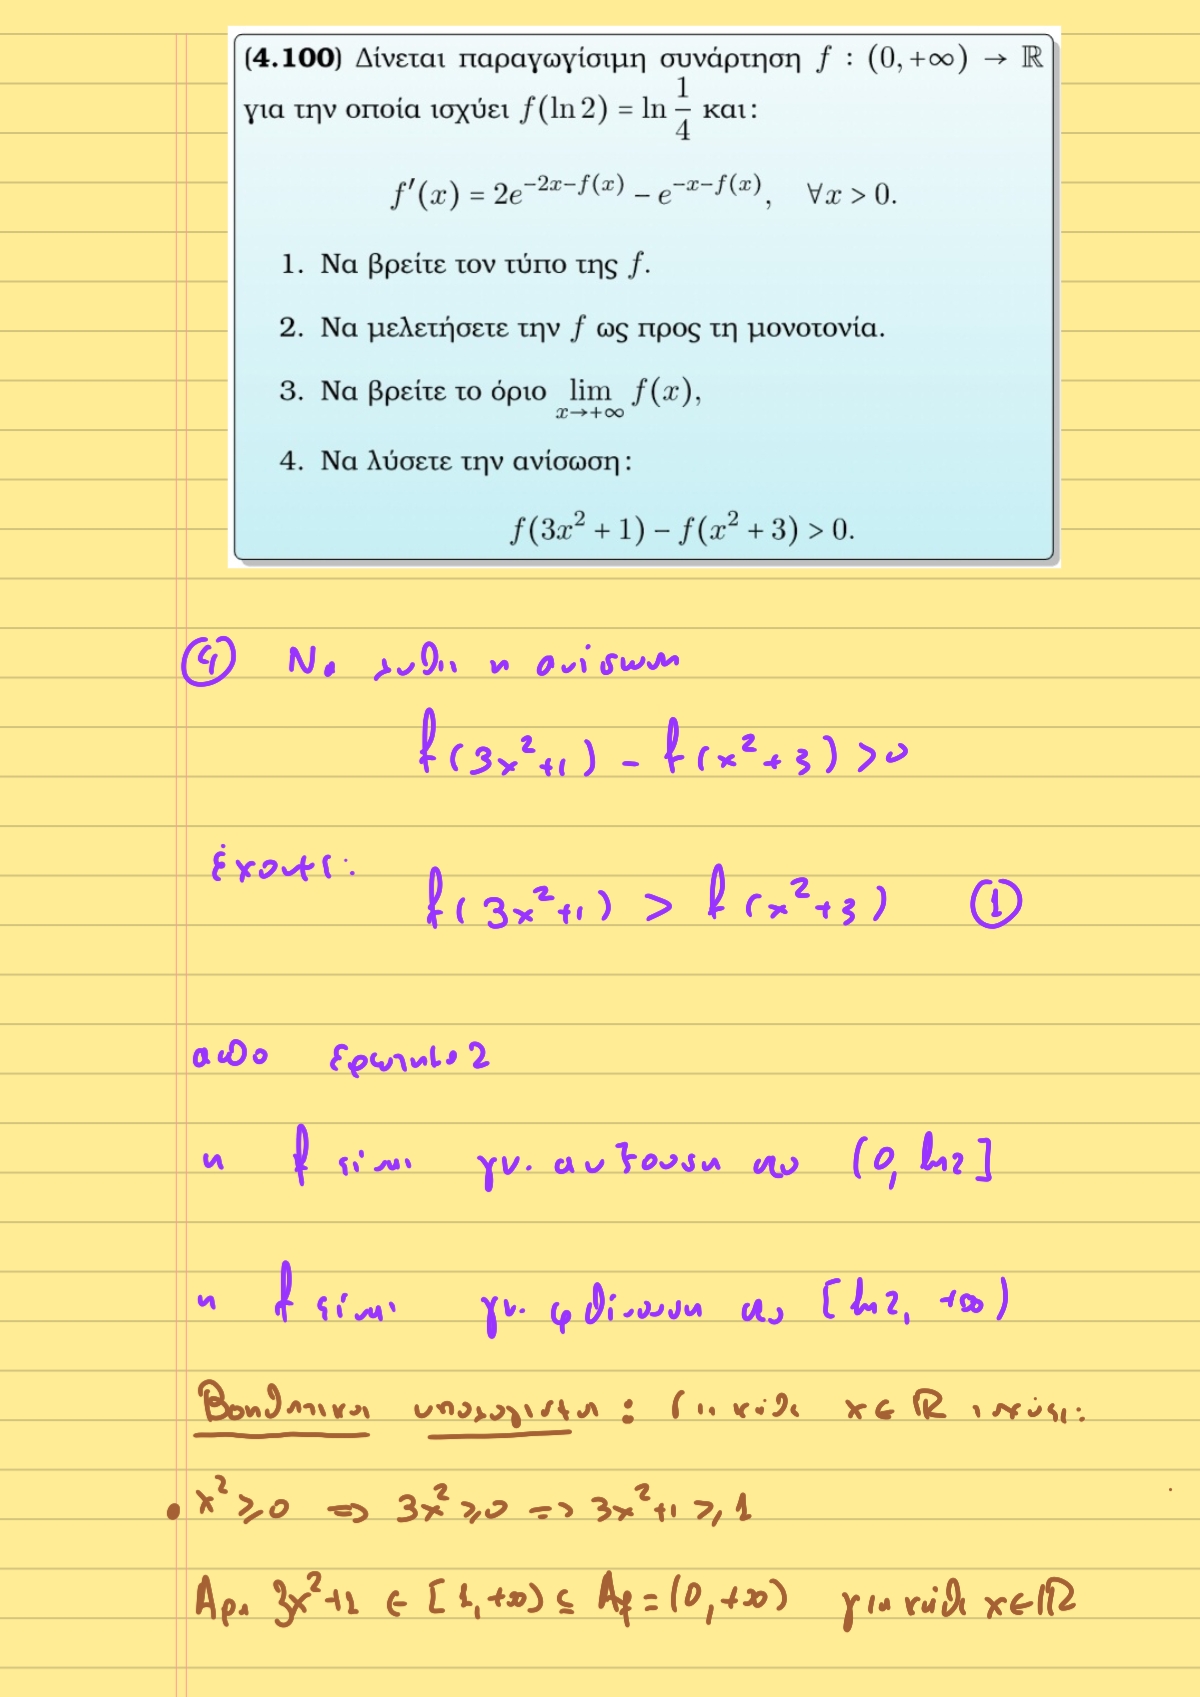 (4.100) Δίνεται παραγωγίσιμη συνάρτηση f : (0, +∞) → ℝ
για την οποία ισχύει f(ln 2) = ln 1/4 και:
f′(x) = 2e^{-2x-f(x)} − e^{-x-f(x)}, ∀x > 0.
1. Να βρείτε τον τύπο της f.
2. Να μελετήσετε την f ως προς τη μονοτονία.
3. Να βρείτε το όριο lim_{x→+∞} f(x),
4. Να λύσετε την ανίσωση:
f(3x² + 1) − f(x² + 3) > 0.
④ Να λυθεί η ανίσωση
f(3x²+1) - f(x²+3) > 0
Έχουμε:
f(3x²+1) > f(x²+3) ①
από ερώτημα 2
η f είναι γν. αύξουσα στο (0, ln2]
η f είναι γν. φθίνουσα στο [ln2, +∞)
Βοηθητικοί υπολογισμοί : Για κάθε x∈ℝ ισχύει:
• x² ≥ 0 ⇒ 3x² ≥ 0 ⇒ 3x²+1 ≥ 1
Άρα 3x²+1 ∈ [1, +∞) ⊆ A_f = (0, +∞) για κάθε x∈ℝ